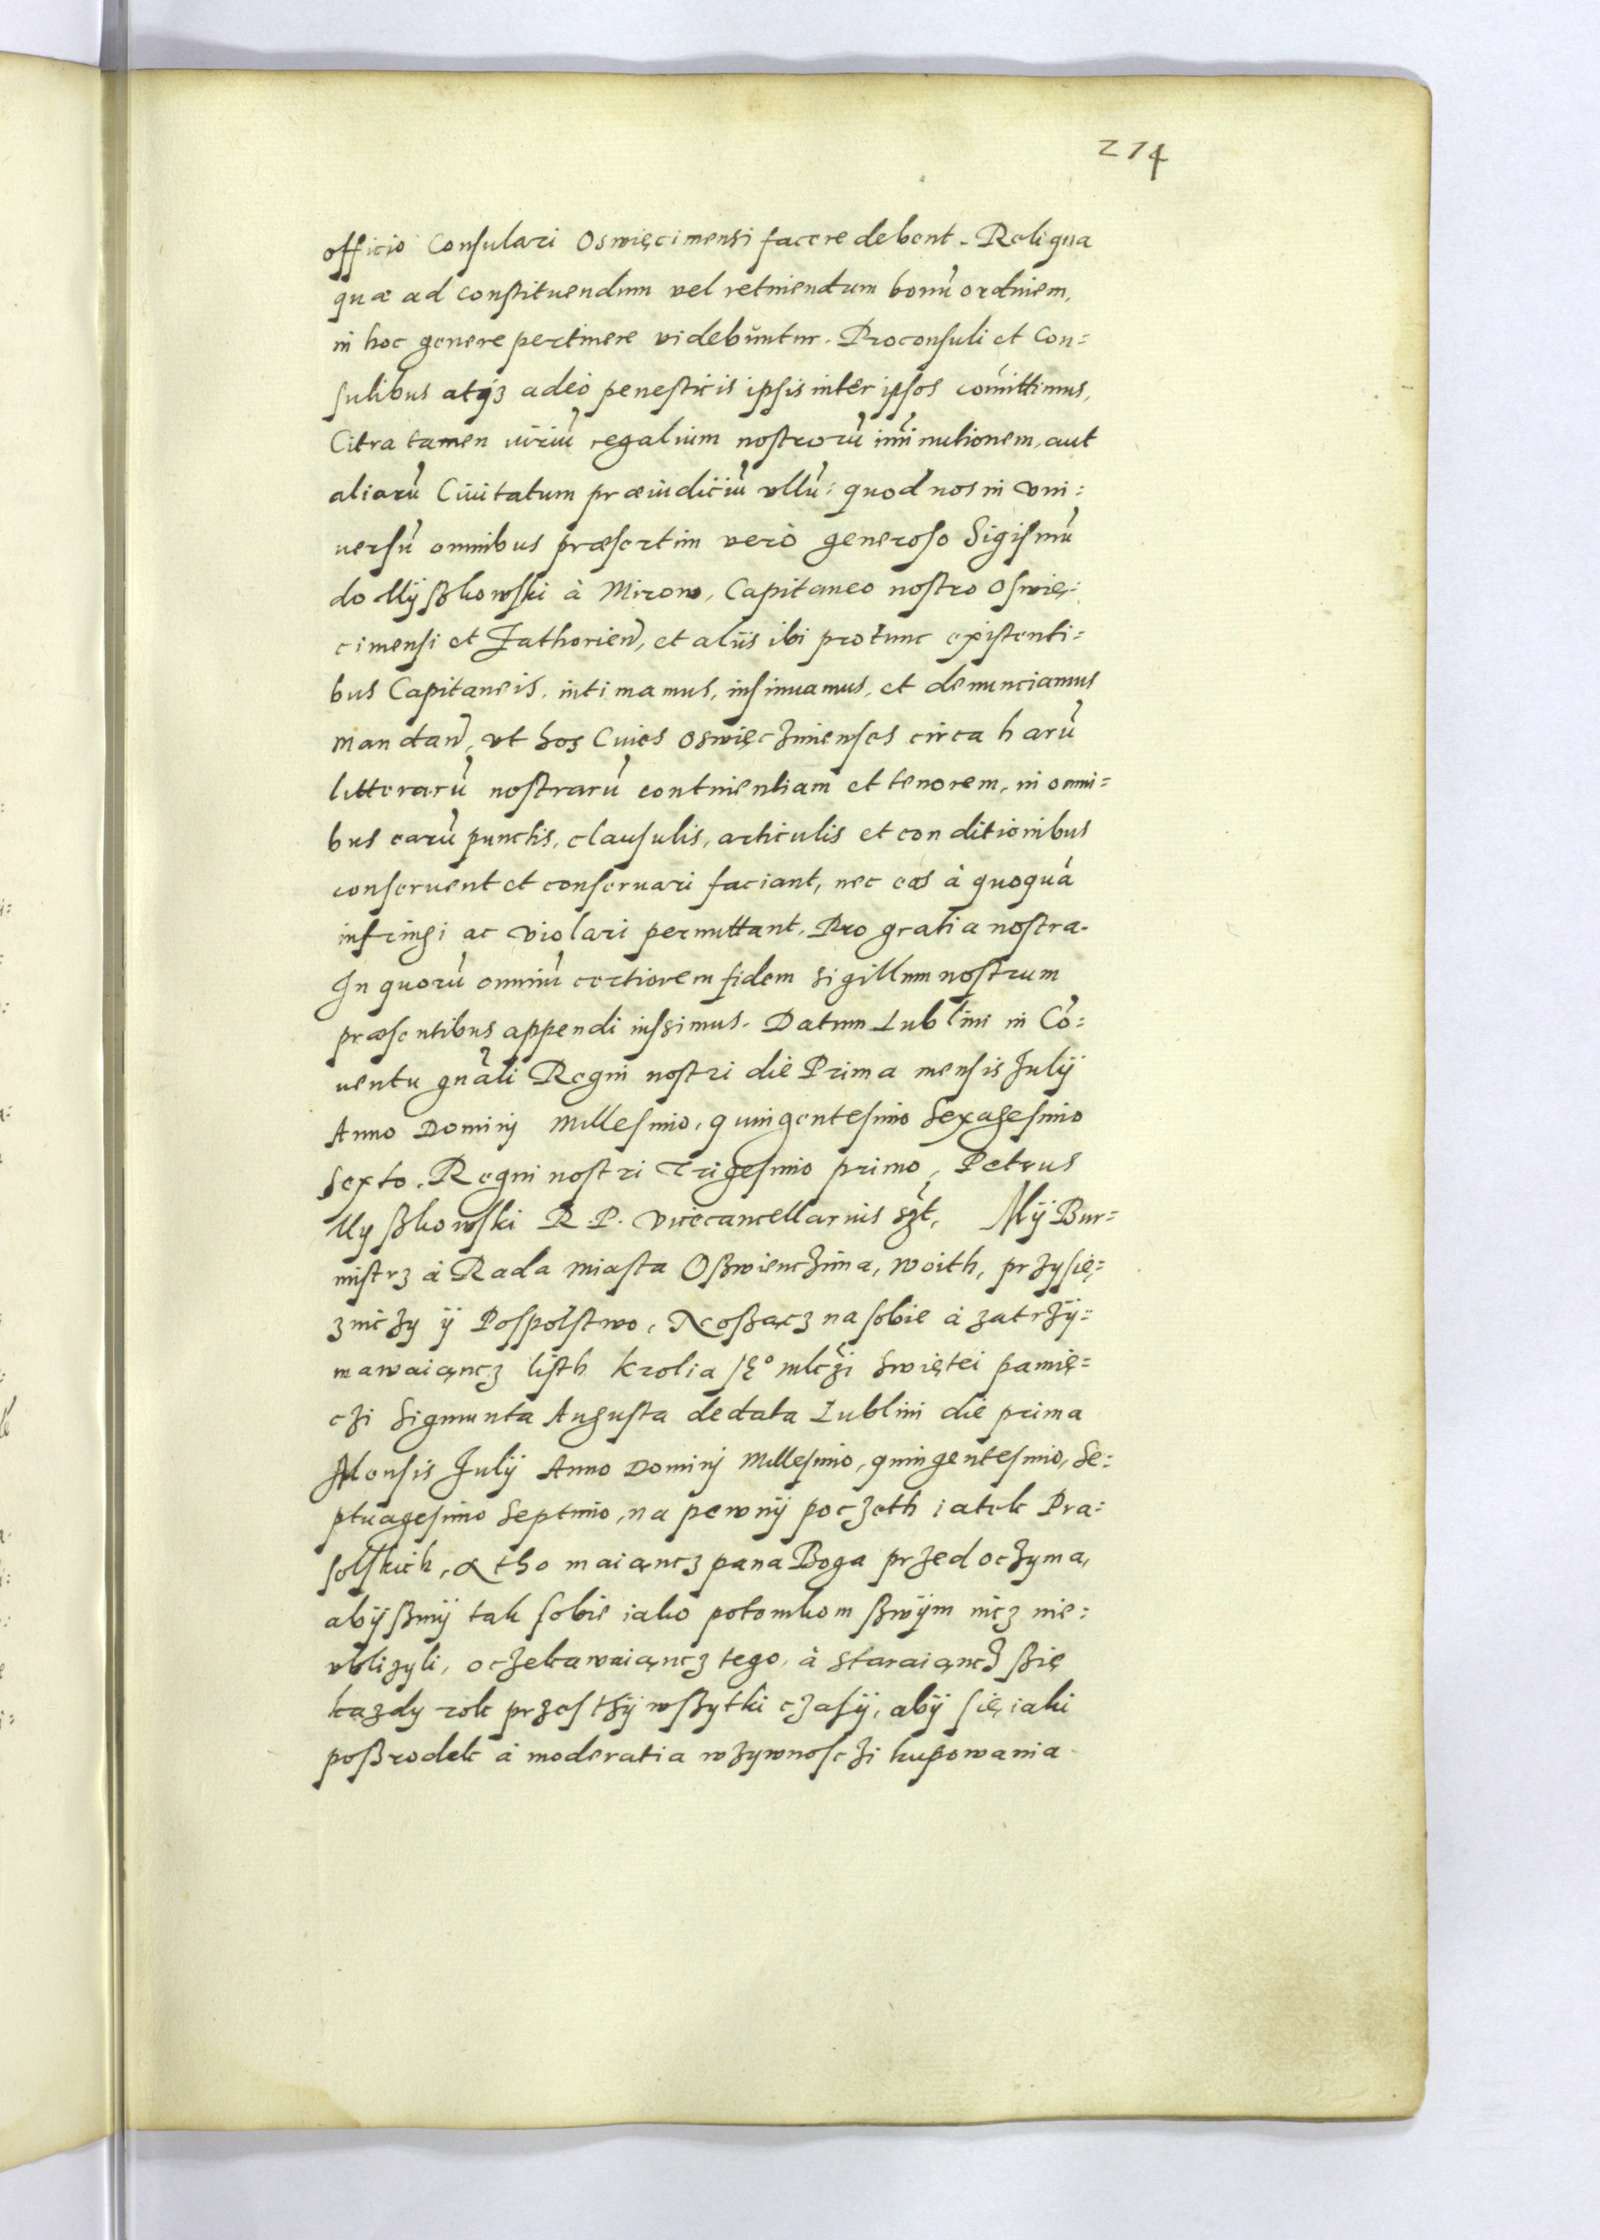 274
officio Consulari Oswięcimensi facere debent. Reliqua
quæ ad constituendum vel retinendum bonũ ordinem,
in hoc genere pertinere videbuntur. Proconsuli et Con=
sulibus atqꝫ adeò penesticis ipsis inter ipsos com̃ittimus,
Citra tamen iuriũ regalium nostrorũ im̃inutionem, aut
aliarũ Ciuitatum præiudiciũ vllũ: quod nos in vni=
uersũ omnibus præsertim verò generoso Sigismũ
do Myßkowski à Mirow, Capitaneo nostro Oswię=
cimensi et Zathorieñ, et aliis ibi protunc existenti=
bus Capitaneis, intimamus, insinuamus, et denunciamus
Mandañ, vt hos Ciues Oswięczimenses circa harũ
litterarũ nostrarũ continentiam et tenorem, in omni=
bus earũ punctis, clausulis, articulis et conditionibus
conseruent et conseruari faciant, nec eas à quoquã
infringi ac violari permittant. Pro gratia nostra.
In quorũ omniũ certiorem fidem sigillum nostrum
præsentibus appendi iussimus. Datum Lublini in Cõ=
uentu gñali Regni nostri die Prima mensis Julÿ
Anno Dominj Millesimo, quingentesimo Sexagesimo
sexto. Regni nostri Trigesimo primo, Petrus
Myßkowski R. P. Vicecancellarius szt, Mÿ Bur=
mistrz à Rada Miasta Oßwienczima, Woith, przysię=
zniczy ÿ Pospolstwo, Noßącz na sobie à zatrzÿ=
mawaiąncz listh krolia Jęº mlczi swiętei pamię=
czi Sigmunta Augusta de data Lublini die prima
Mensis Julÿ Anno Dominj Millesimo, quingentesimo, Se=
ptuagesimo septimo, na pewnÿ poczeth iatek Pra=
solskich, A tho maiąncz pana Boga przed oczyma,
abÿßmÿ tak sobie iako potomkom ßwÿm nicz nie=
vblizyli, oczekawaiąncz tego, à staraiąncz ßię
kazdy rok przes thÿ wßytki czasÿ, abÿ się iaki
poßrodek à moderatia w zywnosczi kupowania